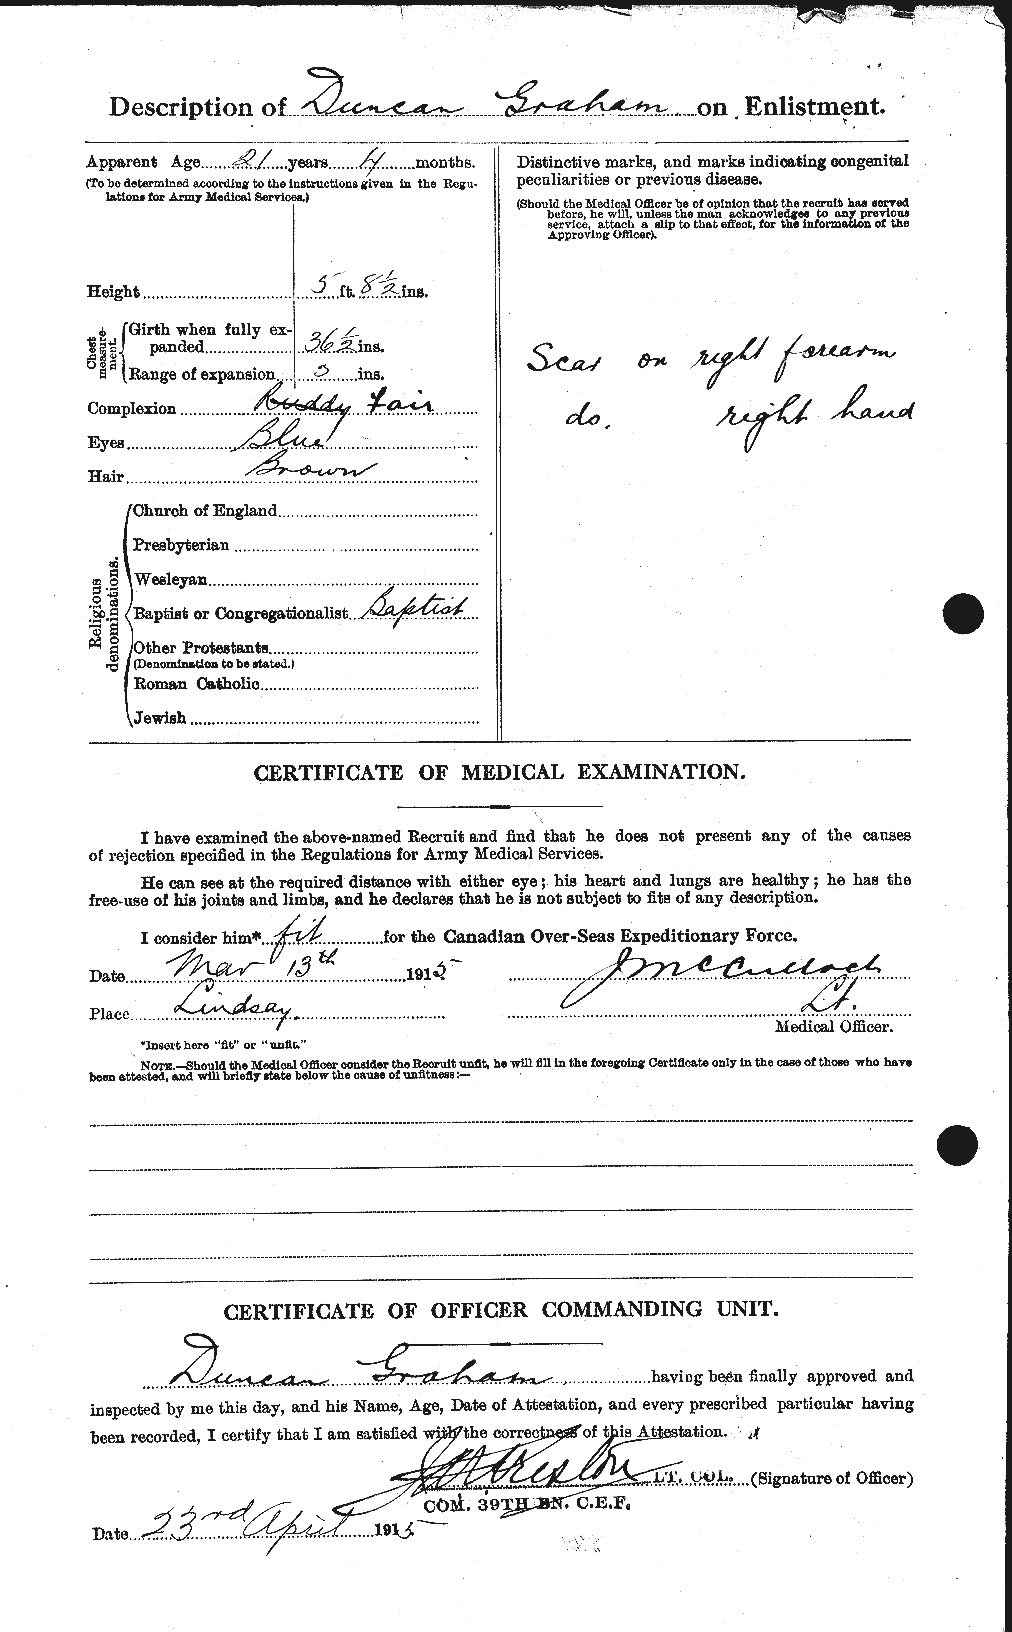 Description of Duncan Graham on Enlistment.
Apparent Age 21 years 4 months.
(To be determined according to the instructions given in the Regu-
lations for Army Medical Services.)
Height 5 ft. 8½ ins.
Chest measure-ment.
Girth when fully ex-
panded 36½ ins.
Range of expansion 3 ins.
Complexion Ruddy Fair
Eyes Blue
Hair Brown
Religious denominations.
Church of England
Presbyterian
Wesleyan
Baptist or Congregationalist Baptist
Other Protestants
(Denomination to be stated.)
Roman Catholic
Jewish
Distinctive marks, and marks indicating congenital
peculiarities or previous disease.
(Should the Medical Officer be of opinion that the recruit has served
before, he will, unless the man acknowledges to any previous
service, attach a slip to that effect, for the information of the
Approving Officer).
Scar on right forearm
do. right hand
CERTIFICATE OF MEDICAL EXAMINATION.
I have examined the above-named Recruit and find that he does not present any of the causes
of rejection specified in the Regulations for Army Medical Services.
He can see at the required distance with either eye; his heart and lungs are healthy; he has the
free-use of his joints and limbs, and he declares that he is not subject to fits of any description.
I consider him* fit for the Canadian Over-Seas Expeditionary Force.
Date Mar 13th 1915 J McCulloch
Place Lindsay. Lt.
Medical Officer.
*Insert here "fit" or "unfit."
NOTE.—Should the Medical Officer consider the Recruit unfit, he will fill in the foregoing Certificate only in the case of those who have
been attested, and will briefly state below the cause of unfitness:—
CERTIFICATE OF OFFICER COMMANDING UNIT.
Duncan Graham having been finally approved and
inspected by me this day, and his Name, Age, Date of Attestation, and every prescribed particular having
been recorded, I certify that I am satisfied with the correctness of this Attestation.
Preston LT. COL. (Signature of Officer)
COM. 39TH BN. C.E.F.
Date 23rd April 1915